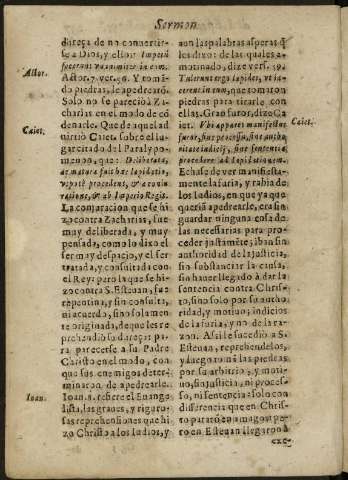 Sermon
dureça de no conuertir-
se a Dios, y ellos: Impetũ
fecerunt vnanimiter in eum.
Actor.
Actor. 7. ver. 56. Y tomã
do piedras, le apedrearõ.
Solo no se pareciò a Za-
charias en el modo de cõ
denarle. Que de aquel ad
Caiet.
uirtiò Caiet. sobre el lu-
gar citado del Paralypo-
menon, que: Deliberatè,
ac maturè fuit hæc lapidatio,
vtpotè procedens, & a coniu-
ratione, & ab Imperio Regis.
La conjuracion que se hi-
zo contra Zacharias, fue
muy deliberada, y muy
pensada, como lo dixo el
ser muy despacio, y el ser
tratada, y consultada con
el Rey: pero la que se hi-
zo contra S. Esteuan, fue
repentina, y sin consulta,
ni acuerdo, sino solamen-
te originada, de que les re
prehendiò su dureça: pa-
ra parecerse a su Padre
Christo en el modo, con
que sus enemigos deter-
minaron de apedrearle.
Ioan.
Ioan. 8. refiere el Euange
lista, las graues, y riguro-
sas reprehensiones que hi-
zo Christo a los Iudios, y
aun las palabras asperas q̃
les dixo: de las quales a-
motinado, dize vers. 59.
Tulerunt ergo lapides, vt ia-
cerent in eum, que tomaron
piedras para tirarle con
ellas. Gran furor, dize Ca
Caiet.
iet. Vbi apparet manifestus
furor, sine processu, sine autho
ritate iudicij, sine sententia,
procedere ad lapidationem.
Echase de ver manifiesta-
mente la furia, y rabia de
los Iudios, en que ya que
queriã apedrearle, era sin
guardar ninguna cosa de
las necessarias para pro-
ceder justamẽte; iban sin
authoridad de la justicia,
sin substanciar la causa,
sin hauer llegado à dar la
sentencia contra Chris-
to, sino solo por su autho
ridad, y motiuo; indicios
de la furia, y no de la ra-
zon. Assi le sucediò a S.
Esteuan, reprehendelos,
y luego tomã las piedras
por su arbitrio, y moti-
uo, sin justicia, ni proces-
so, ni sentencia: solo con
diferencia que en Chris-
to pararõ en amago; pe-
ro en Esteuan llegaron à
exe-